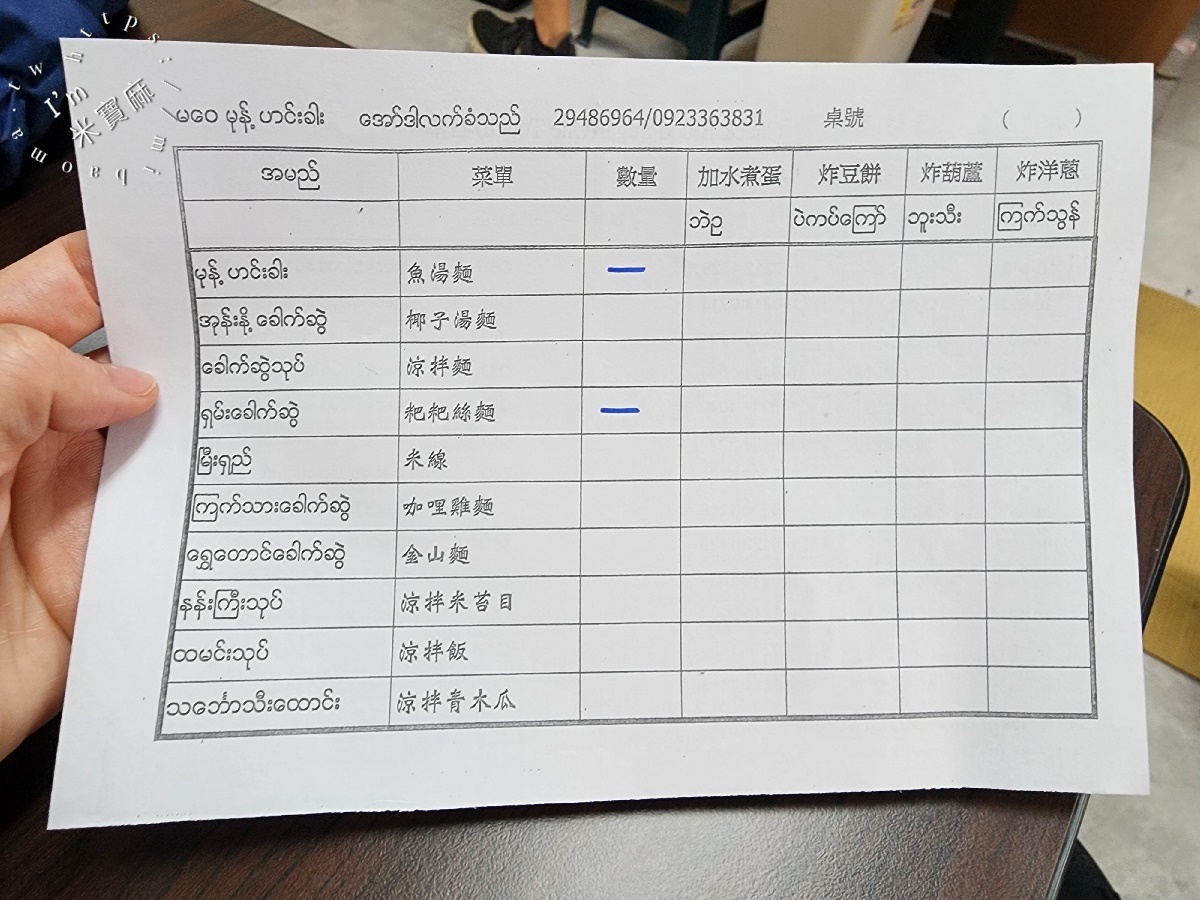 https://mibaoma.tw
I'm
米寶麻
မဝေ မုန့် ဟင်းခါး အော်ဒါလက်ခံသည် 29486964/0923363831 桌號 ( )
အမည် 菜單 數量 加水煮蛋 炸豆餅 炸葫蘆 炸洋蔥
ဘဲဥ ပဲကပ်ကြော် ဘူးသီး ကြက်သွန်
မုန့် ဟင်းခါး 魚湯麵 一
အုန်းနို့ ခေါက်ဆွဲ 椰子湯麵
ခေါက်ဆွဲသုပ် 涼拌麵
ရှမ်းခေါက်ဆွဲ 粑粑絲麵 一
မြီးရှည် 米線
ကြက်သားခေါက်ဆွဲ 咖哩雞麵
ရွှေတောင်ခေါက်ဆွဲ 金山麵
နန်းကြီးသုပ် 涼拌米苔目
ထမင်းသုပ် 涼拌飯
သင်္ဘောသီးထောင်း 涼拌青木瓜